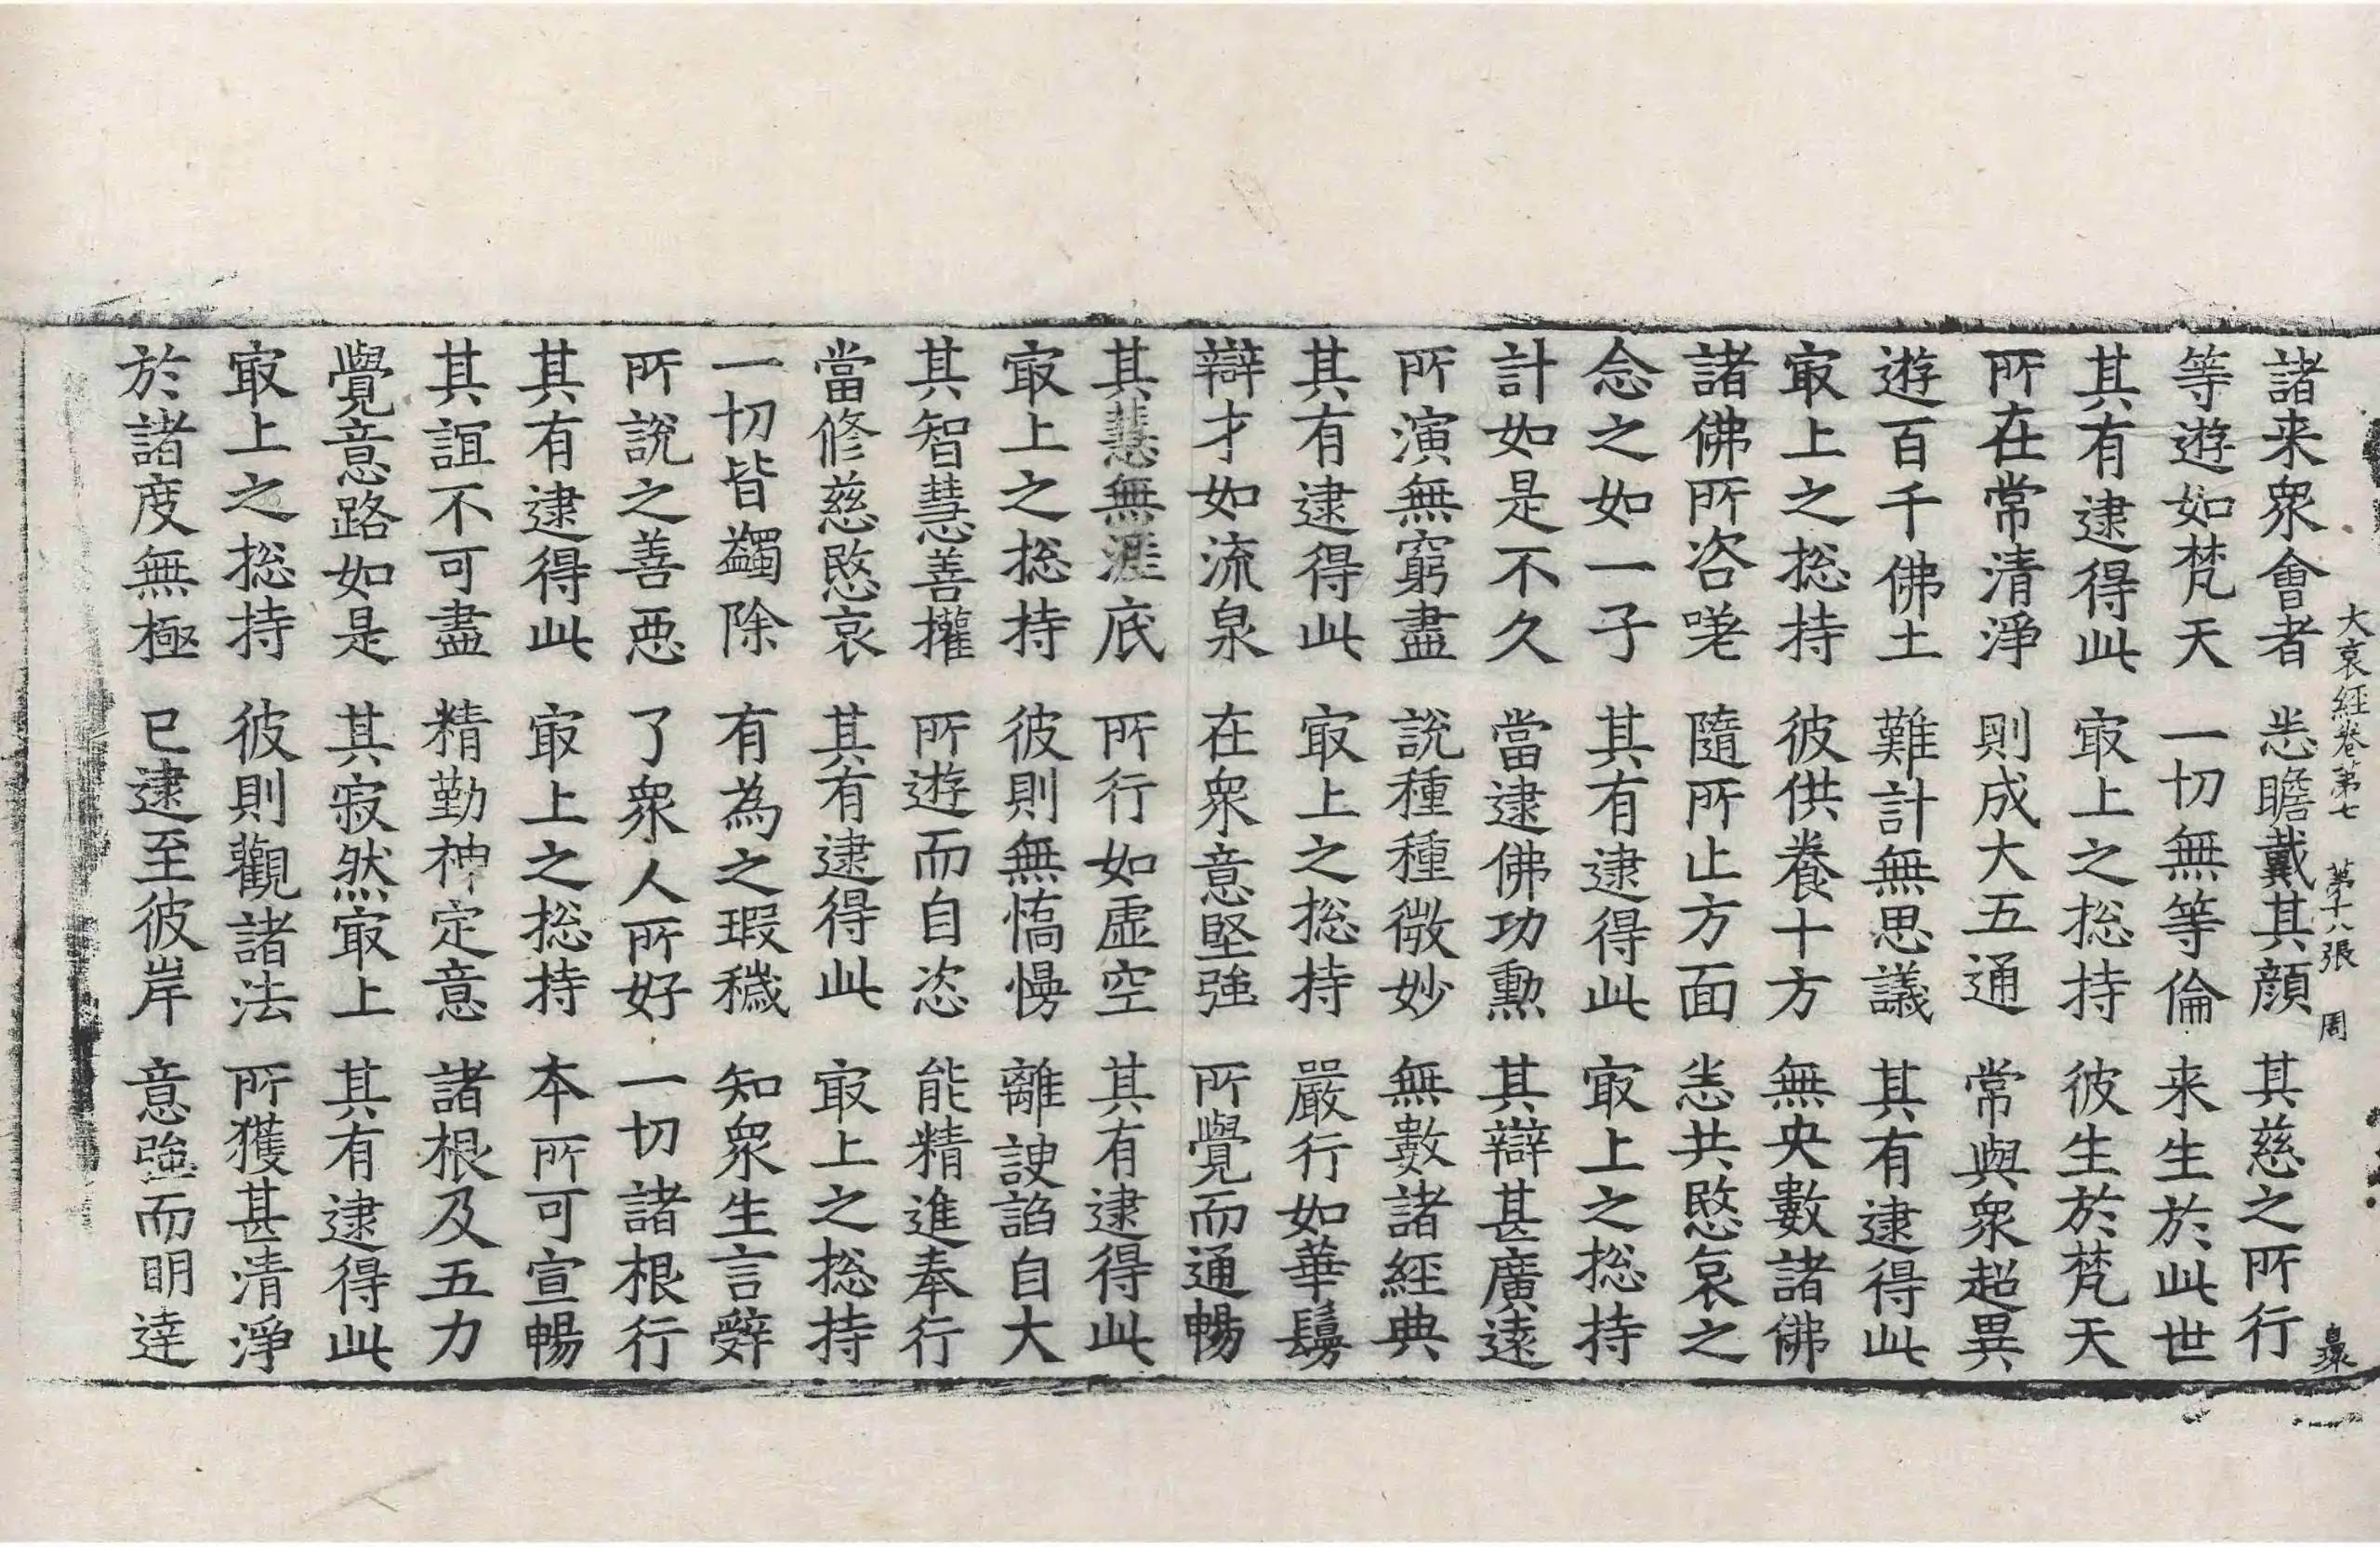 大哀經卷第七　第十八張　周
諸来眾會者　悉瞻戴其顔　其慈之所行
等遊如梵天　一切無等倫　来生於此世
其有逮得此　㝡上之揔持　彼生於梵天
所在常清淨　則成大五通　常與眾超異
遊百千佛土　難計無思議　其有逮得此
㝡上之揔持　彼供養十方　無央數諸佛
諸佛所咨嗟　隨所止方面　悉共愍哀之
念之如一子　其有逮得此　㝡上之揔持
計如是不久　當逮佛功勳　其辯甚廣遠
所演無窮盡　說種種微妙　無數諸經典
其有逮得此　㝡上之揔持　嚴行如華鬘
辯才如流泉　在眾意堅強　所覺而通暢
其慧無涯底　所行如虛空　其有逮得此
㝡上之揔持　彼則無憍慢　離諛諂自大
其智慧善權　所遊而自恣　能精進奉行
當修慈愍哀　其有逮得此　㝡上之揔持
一切皆蠲除　有為之瑕穢　知眾生言辤
所說之善惡　了眾人所好　一切諸根行
其有逮得此　㝡上之揔持　本所可宣暢
其誼不可盡　精勤神定意　諸根及五力
覺意路如是　其寂然㝡上　其有逮得此
㝡上之揔持　彼則觀諸法　所獲甚清淨
於諸度無極　已逮至彼岸　意強而明達